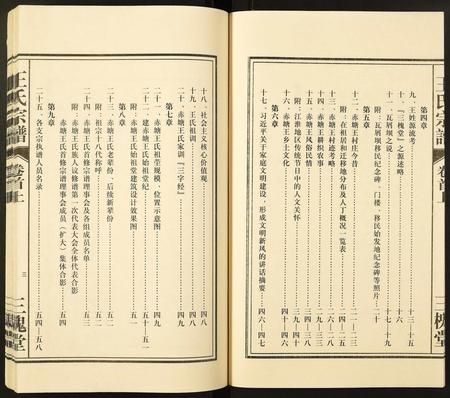 王氏宗譜
卷首上
三槐堂
第四章
九、王姓源流考………十三—十五
十、『三槐堂』之源述略………十六
十一、瓦屑坝之说………十七—十九
附：瓦屑坝移民纪念碑、门楼、移民始发地纪念碑等照片…二十
第五章
十二、赤塘王村庄今昔
附：在祖居和迁移地分布及人丁概况一览表
十三、赤塘王村迹考略
十四、赤塘王耕织农事
十五、赤塘王风俗民情
附：江淮地区传统节日中的人文关怀
十六、赤塘王乡土文化
十七、习近平关于家庭文明建设，形成文明新风的讲话摘要………四六—四七
王氏宗譜
卷首上
三
三槐堂
十八、社会主义核心价值观………四八
十九、王氏祖训………四八
二十、赤塘王氏家训『三字经』………四九
第七章
二十一、赤塘王氏祖茔规模、位置示意图………四九
二十二、建赤塘王氏始祖堂纪………五十—五一
二十三、赤塘王氏始祖堂建筑设计效果图………五一
第八章
二十四、赤塘王氏老辈份、后续新辈份
附：祖宗十八代名称
附：赤塘王氏族人议修谱第一次代表大会全体代表合影
二十四、赤塘王氏首修宗谱理事会及各组成员名单………五三
附：赤塘王氏首修宗谱理事会成员（扩大）集体合影………五四
第九章
二十五、各支宗执谱人员名录………五四—五八